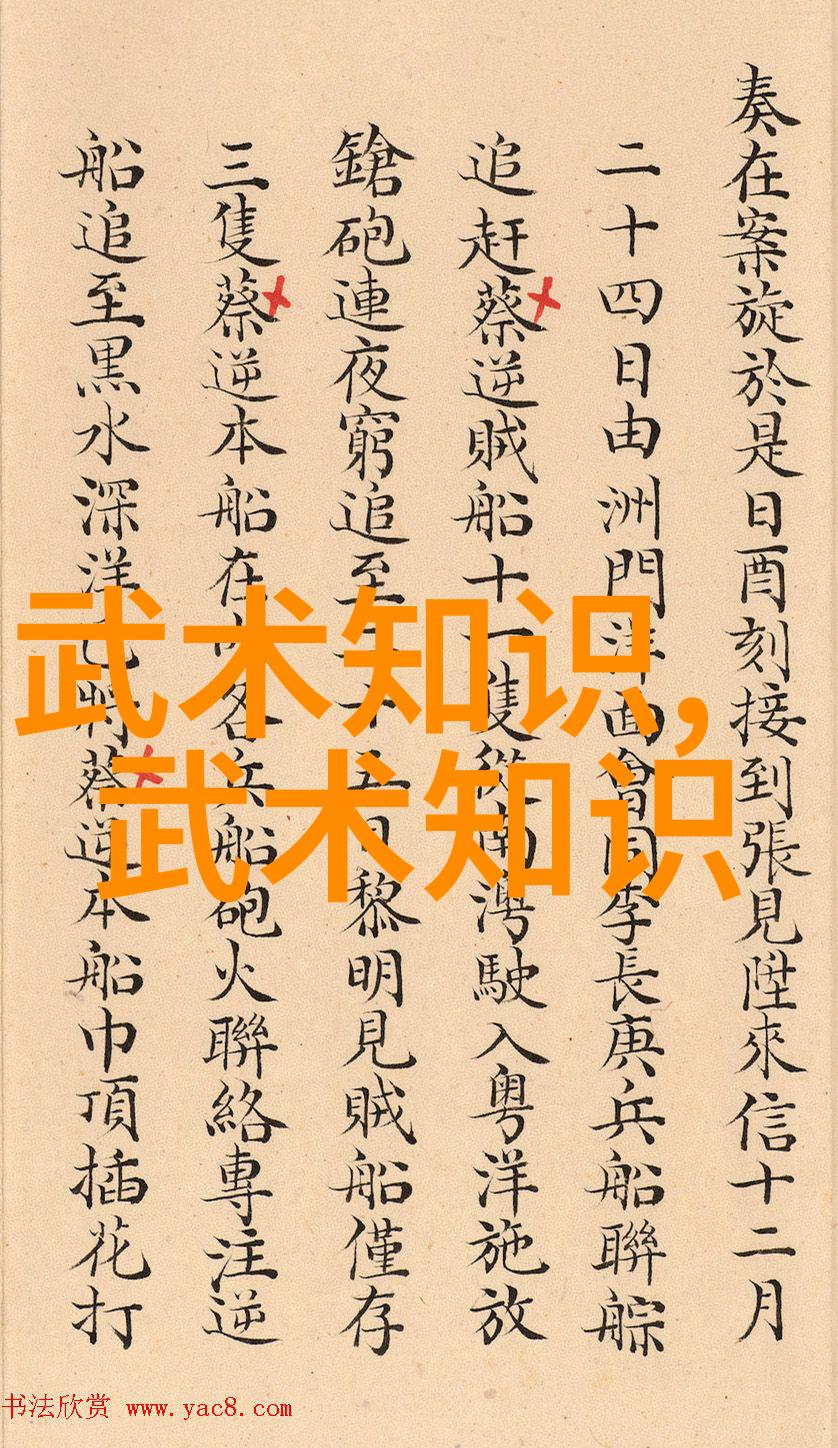 奏在案旋於是日酉刻接到張見陞來信十二月
二十四日由洲門洋面會同李長庚兵船聯䑸
追赶蔡逆賊船十一隻從南灣駛入粤洋施放
鎗砲連夜窮追至二十五日黎明見賊船僅存
三隻蔡逆本船在內各兵船砲火聯絡專注逆
船追至黒水深洋已將蔡逆本船巾頂插花打
武术知识,
武术知识
书法欣赏 www.yac8.com